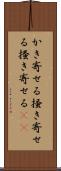 かき寄せる掻き寄せ
る掻き寄せる××